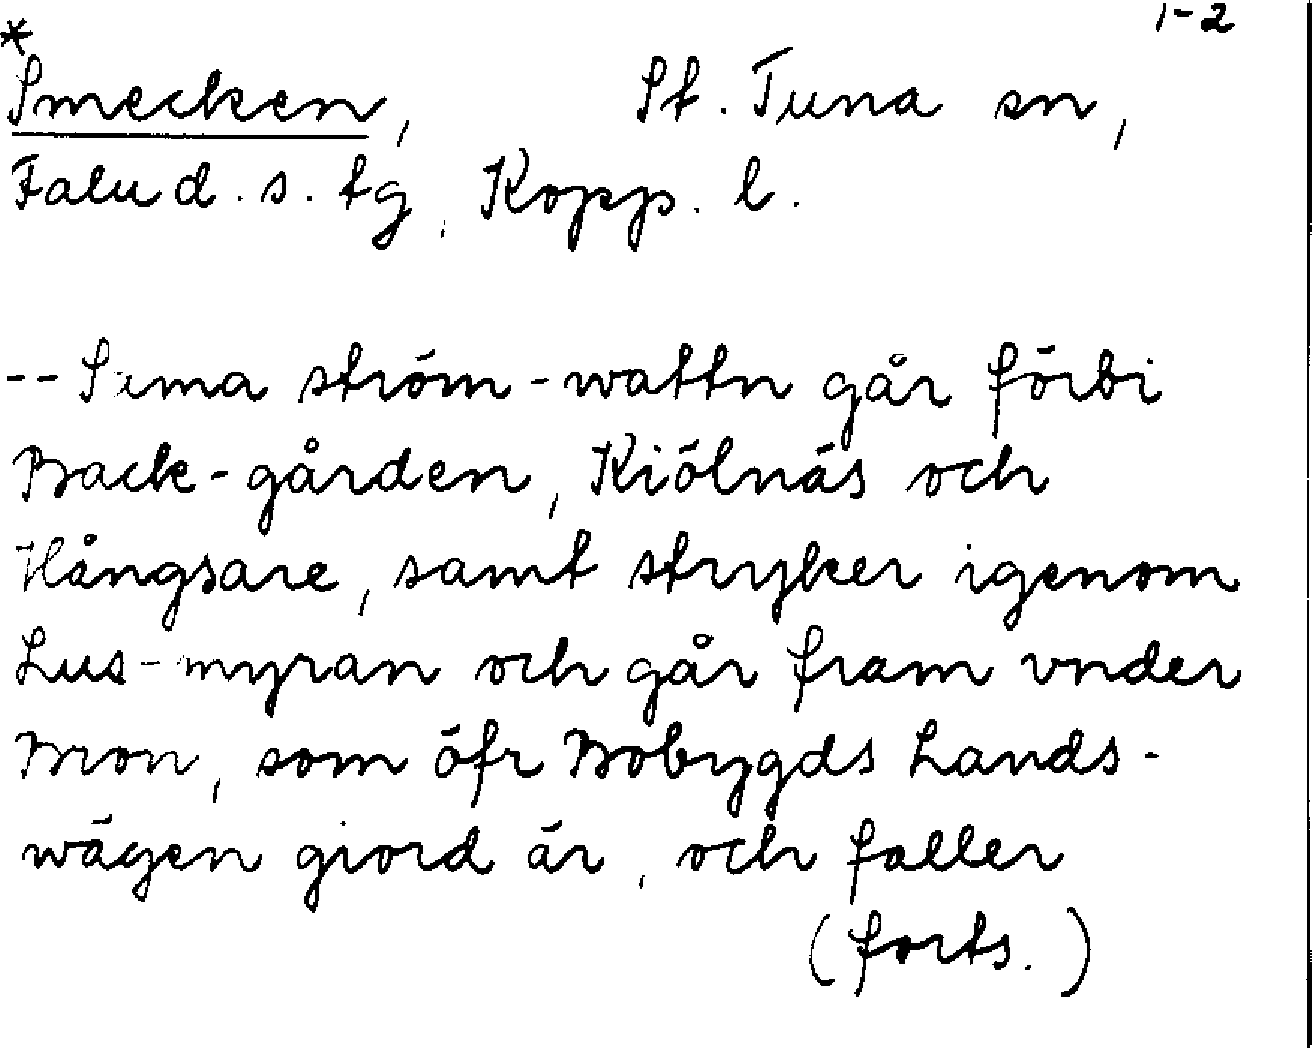 1-2
*
Smecken, St. Tuna sn,
Falu d. s. tg, Kopp. l.
-- Sama ström-wattn går förbi
Back-gården, Kiölnäs och
Hångsare, samt stryker igenom
Lus-myran och går fram vnder
Bron, som öfr Bobygds Lands-
wägen giord är, och faller
(forts.)